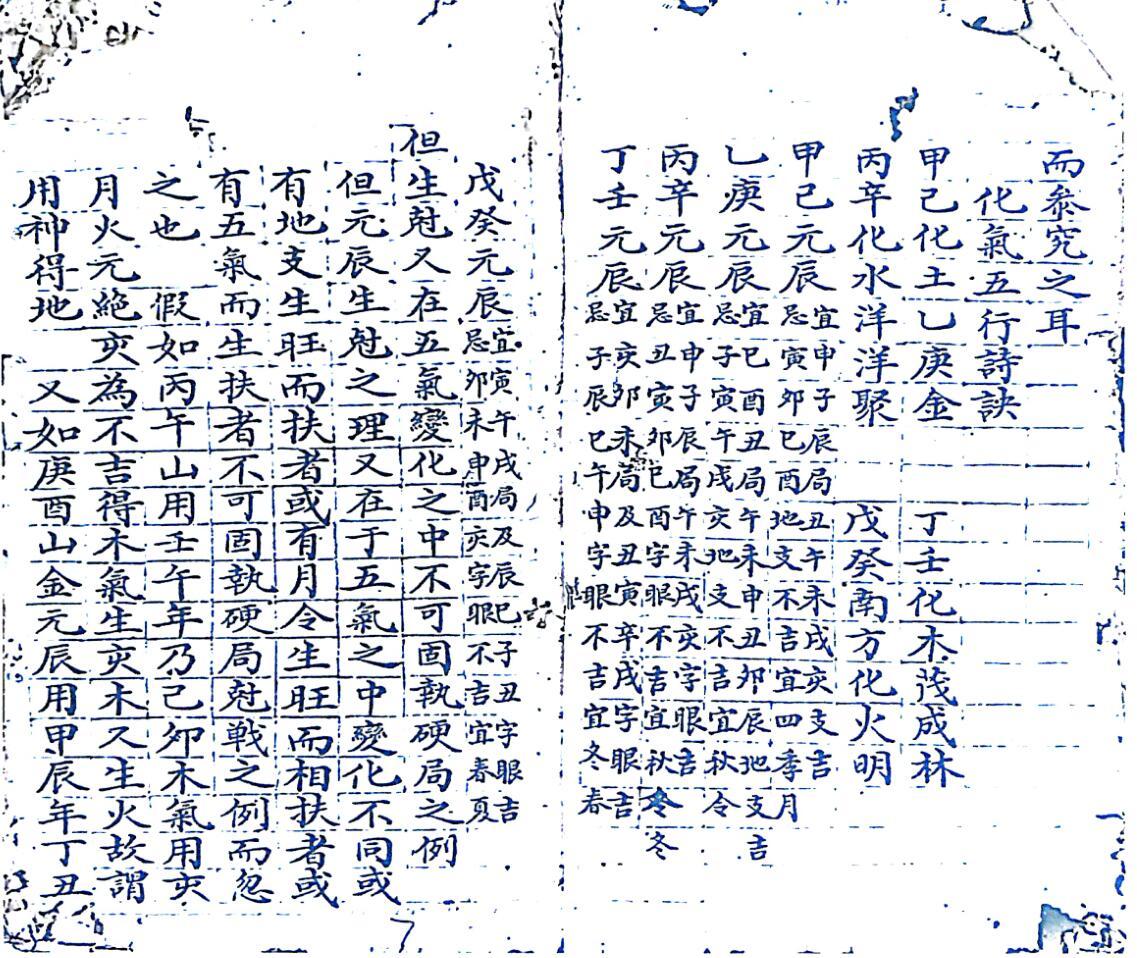 而叅究之耳
化氣五行詩訣
甲己化土乙庚金 丁壬化木茂成林
丙辛化水洋洋聚 戊癸南方化火明
甲己元辰
宜申子辰局丑午未戌亥支吉
忌寅卯巳酉地支不吉宜四季月
乙庚元辰
宜巳酉丑局午未申丑卯辰地支吉
忌子寅午戌亥地支不吉宜秋令
丙辛元辰
宜申子辰局午未戌亥字眼吉
忌丑寅卯巳酉字眼不吉宜秋冬
丁壬元辰
宜亥卯未局及丑寅辛戌字眼吉
忌子辰巳午申字眼不吉宜冬春
戊癸元辰
宜寅午戌局及辰巳子丑字眼吉
忌卯未申酉亥字眼不吉宜春夏
但生尅又在五氣變化之中不可固執硬局之例
但元辰生尅之理又在于五氣之中變化不同或
有地支生旺而扶者或有月令生旺而相扶者或
有五氣而生扶者不可固執硬局尅戰之例而忽
之也 假如丙午山用壬午年乃己卯木氣用亥
月火元絕亥為不吉得木氣生亥木又生火故謂
用神得地 又如庚酉山金元辰用甲辰年丁丑
7